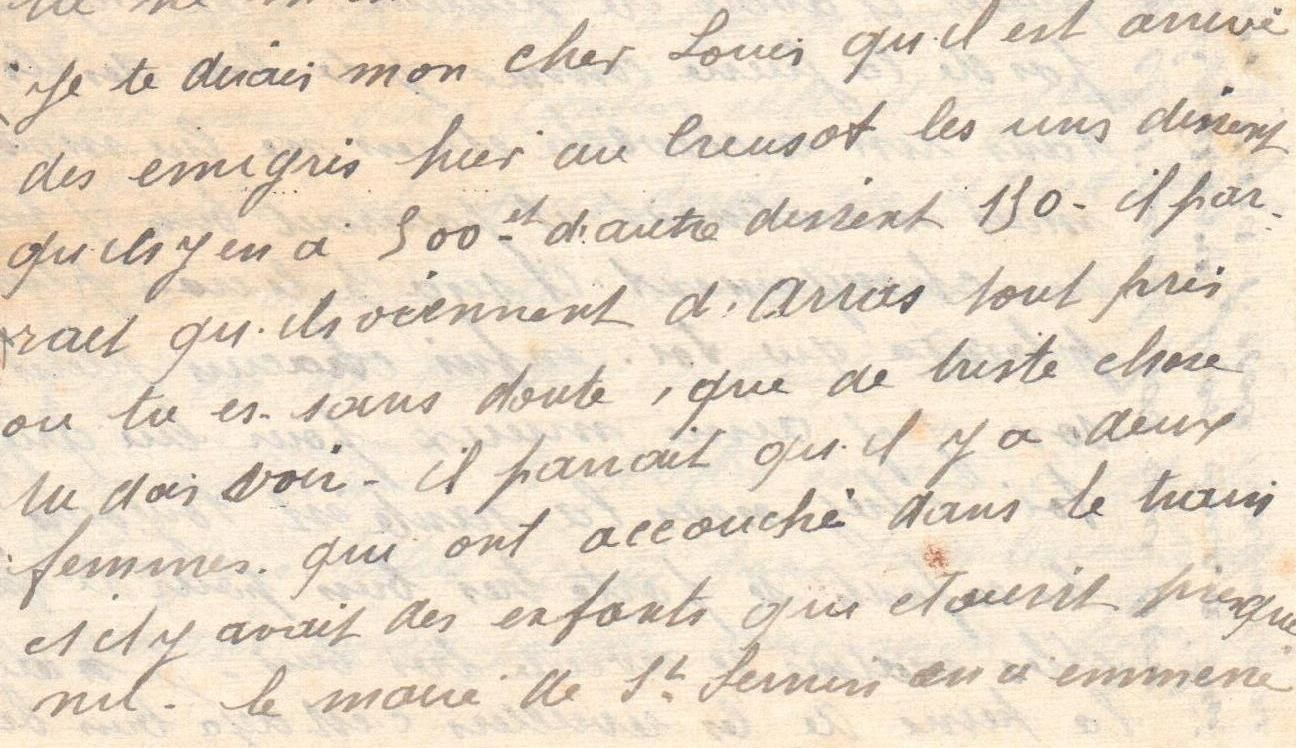 Je te dirais mon cher Louis qu'il est arrivé
des emigris hier au Creusot les uns dissent
qu'ils y en a 500 - et d'autre dissent 150 - il par-
rait qu'ils viennent d'Arras tout près
ou tu es sans doute, que de triste chose
tu dois voir - il parrait qu'il y a deux
femmes qui ont accouché dans le train
et il y avait des enfants qui etaient presque
nu - le maire de St Sernin en a emmené